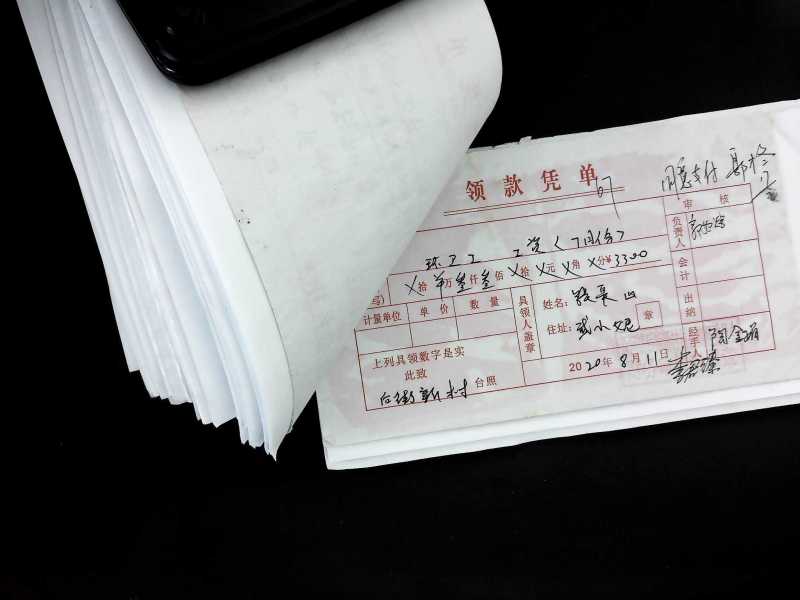 领款凭单
67
同意支付
环卫工 工资(7月份)
写) 拾 万叁仟叁佰 拾 元 角 分¥3300
计量单位 单价 数量
具领人盖章
姓名:
住址:
章
上列具领数字是实
此致
后街新村 台照
2020年8月11日
审核
负责人
会计
出纳
经手人